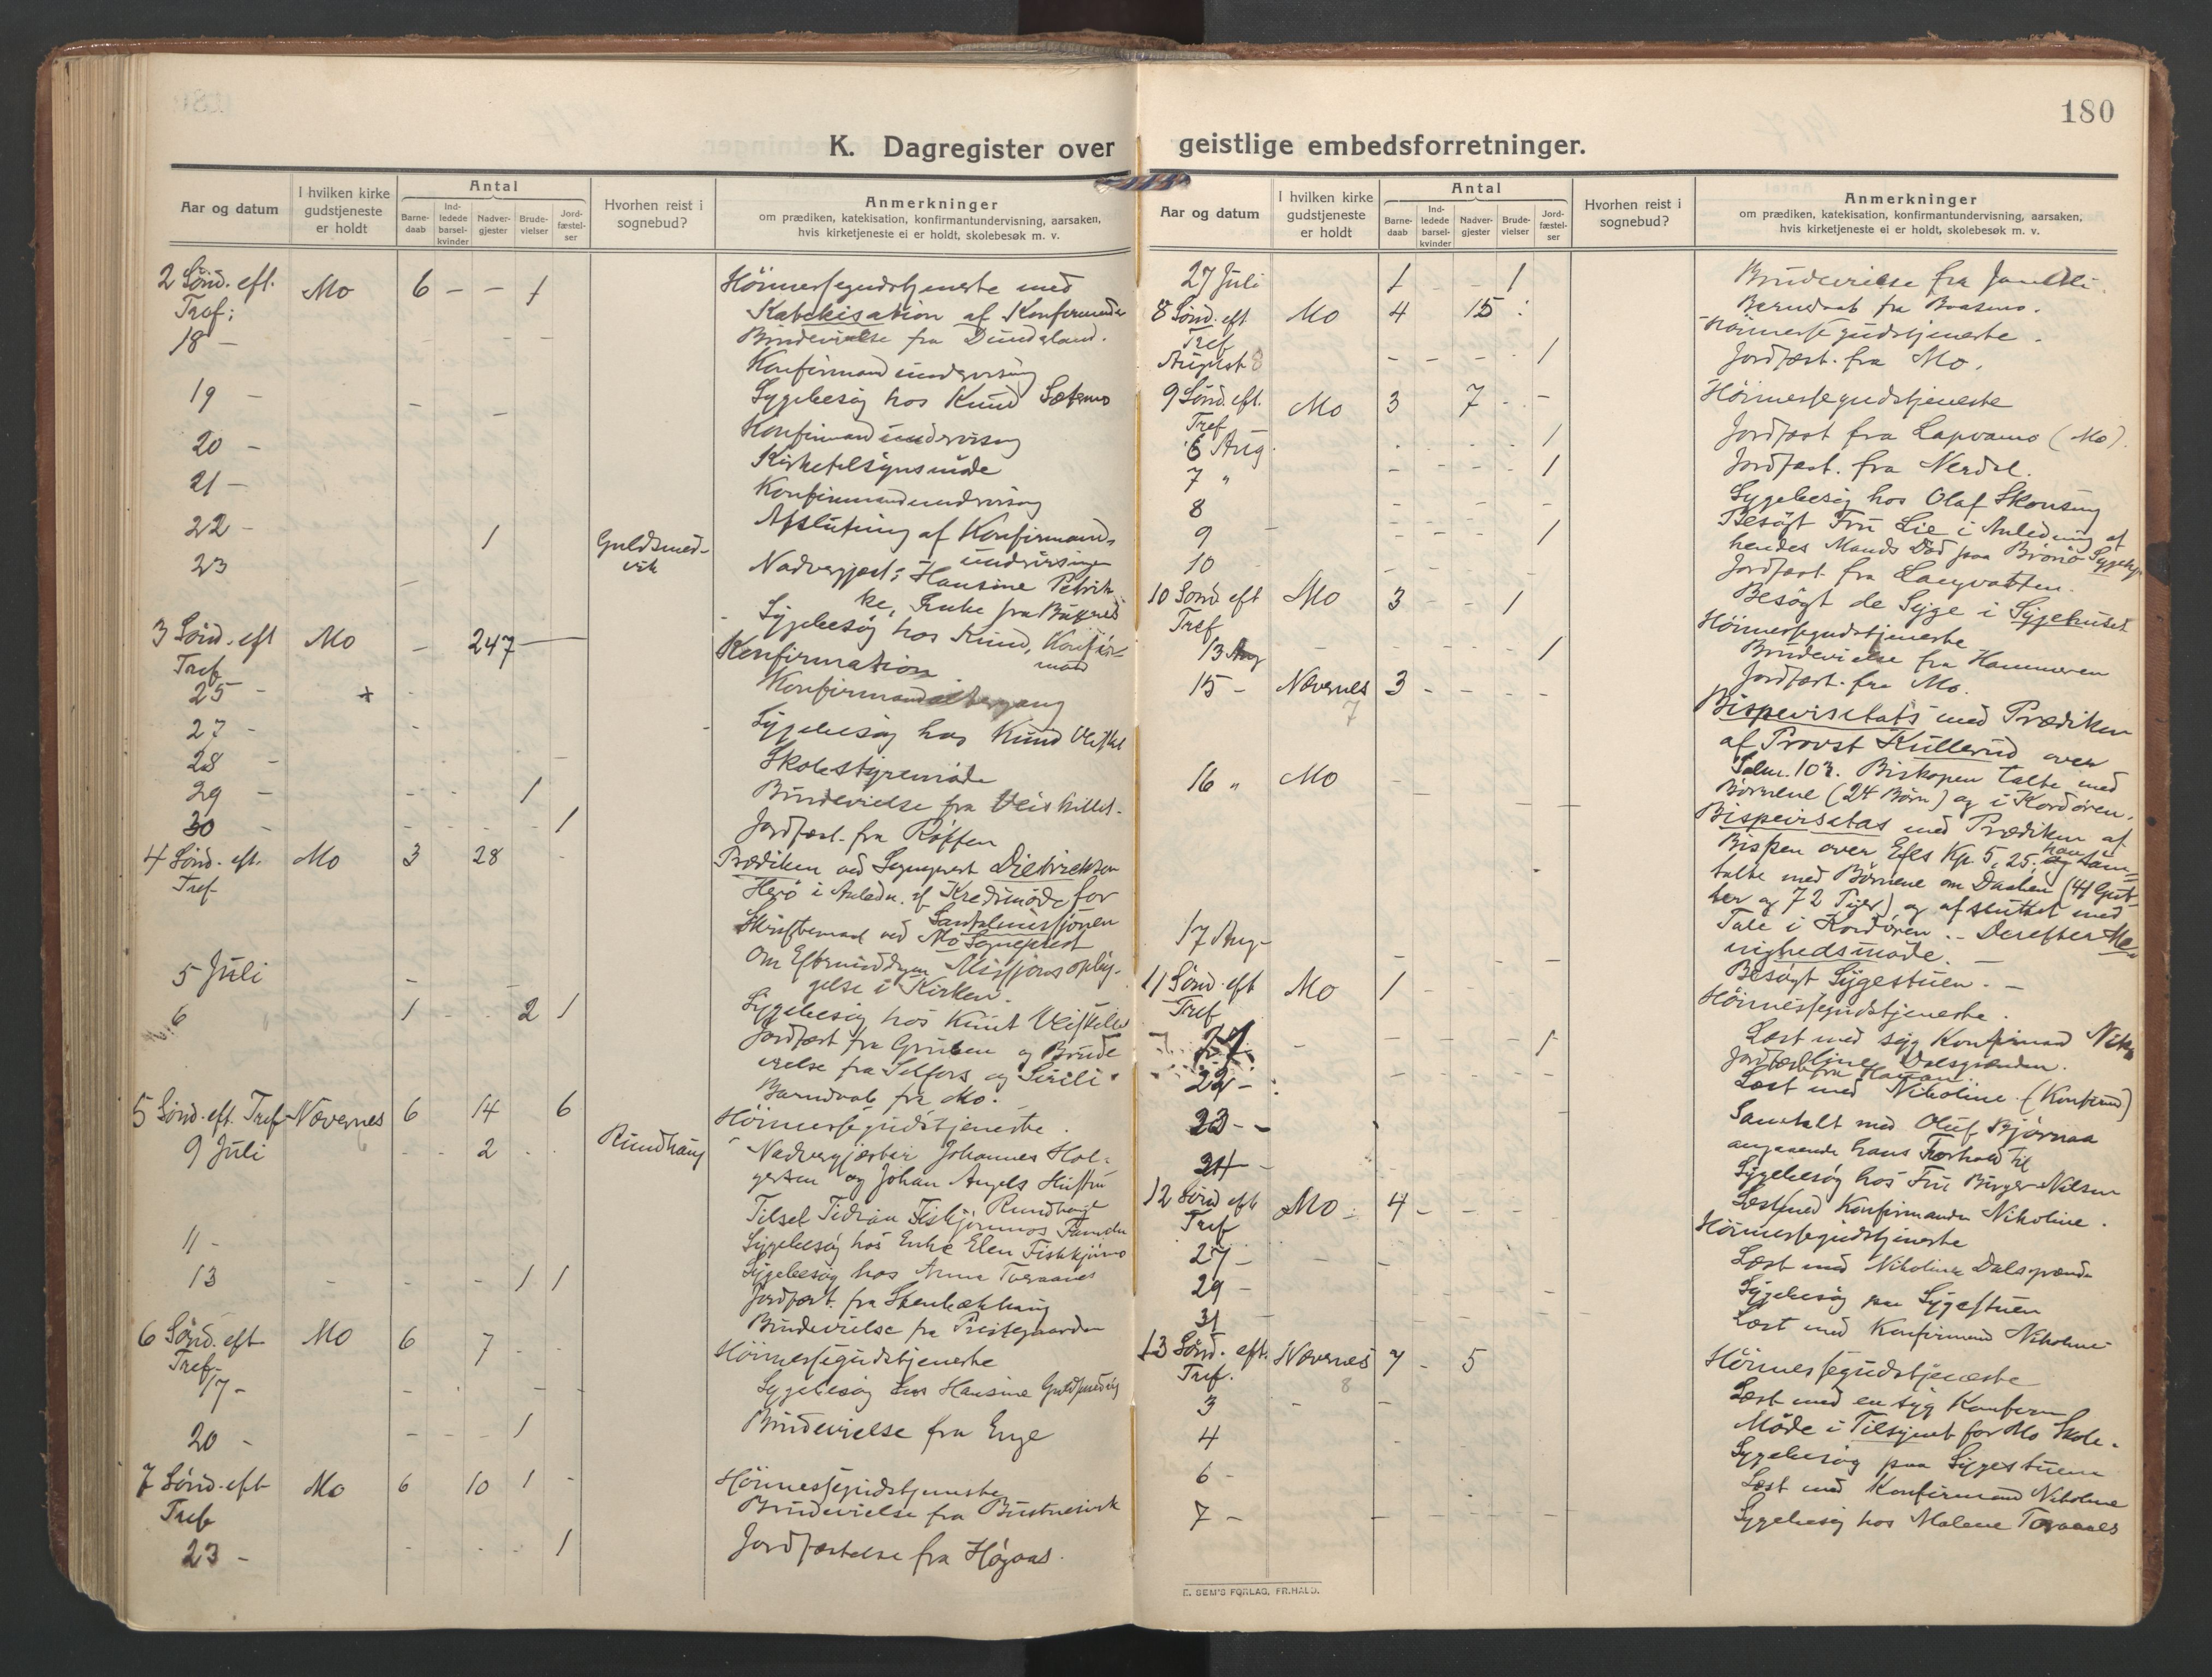 180
K. Dagregister over geistlige embedsforretninger.
Aar og datum
I hvilken kirke gudstjeneste er holdt
Antal
Barne-daab
Ind-ledede barsel-kvinder
Nadver-gjester
Brude-vielser
Jord-fæstel-ser
Hvorhen reist i sognebud?
Anmerkninger
om prædiken, katekisation, konfirmantundervisning, aarsaken,
hvis kirketjeneste ei er holdt, skolebesøk m. v.
2 Sønd. eft. Mo 6 - - 1 Höimessegudstjeneste med
Tref: Katekisation af Konfirmander
18 - Brudevielse fra Dunderland.
Konfirmandundervisning
19 - Sygebesøg hos Knud Sætermo
Konfirmandundervisning
20 - Kirketilsynsmöde
21 - Konfirmandundervisning
22 - Afslutning af Konfirmand-
undervisningen
23 1 Guldsmed-
vik
Nadvergjest: Hansine Petrik-
ke, Enke fra
Sygebesøg hos Knud, Konfir-
mand
3 Sønd. eft Mo - 247 Konfirmation
Tref
25 - Konfirmandaltergang
27 - Sygebesøg hos Knud
28 - Skolestyremöde
29 - 1 Brudevielse fra
30 - 1 Jordfæst. fra Røffen
4 Sønd. eft. Mo 3 28 Prædiken ved Sogneprest Dietrichson
Tref Herö i Anledn. af Kredsmöde for
Santalmissjonen
Skriftemaal ved Mo Sogneprest
Om Eftermiddagen Missjonsoplys-
gelse i Kirken.
5 Juli Sygebesøg hos Knut
6 1 - - 2 1 Jordfæst fra Gruben og Brude
vielse fra Selfors og
Barndaab fra Mo.
5 Sønd. eft. Tref Nævernes 6 14 6 Höimessegudstjeneste.
9 Juli 2 Rundhaug Nadvergjæster Johannes Hol-
gersen og Johan Angels Hustru
Rundhaug
Tilset
11 - Sygebesøg hos Enke Elen Fiskkjønmo
13 1 1 Sygebesøg hos Anna Toraanes
Jordfæst. fra Stenbækhaug
Brudevielse fra Prestegaarden
6 Sønd. eft Mo 6 7 Höimessegudstjeneste
Tref.
17 - Sygebesøg hos Hansine Guldsmedvig
20 - 1 Brudevielse fra Enge
7 Sønd. eft Mo 6 10 1 - Höimessegudstjeneste
Tref Brudevielse fra Bustnesvik
23 - 1 Jordfæstelse fra Høgaas.
geistlige embedsforretninger.
Aar og datum
I hvilken kirke gudstjeneste er holdt
Antal
Barne-daab
Ind-ledede barsel-kvinder
Nadver-gjester
Brude-vielser
Jord-fæstel-ser
Hvorhen reist i sognebud?
Anmerkninger
om prædiken, katekisation, konfirmantundervisning, aarsaken,
hvis kirketjeneste ei er holdt, skolebesøk m. v.
27 Juli 1 - - 1 Brudevielse fra
Barndaab fra Baasmo.
8 Sønd. eft Mo 4 15 Höimessegudstjeneste.
Tref
August 8 1 Jordfæst. fra Mo.
9 Sønd. eft. Mo 3 7 - - Höimessegudstjeneste
Tref
6 Aug. 1 Jordfæst fra Lapvamo (Mo).
7 " 1 Jordfæst. fra Nerdal.
8 Sygebesøg hos Olaf Skonseng
9 1 Besøgt Fru Lie i Anledning af
hendes Mands Död paa Brönö Sygehus
Jordfæst. fra Langvatten.
10 Besøgt de Syge i Sygehuset
10 Sønd eft Mo 3 - - 1 Höimessegudstjeneste
Tref Brudevielse fra Hammeren
13 Aug 1 Jordfæst. fra Mo.
15 - Nævernes 3 Bispevisitats med Prædiken
7
af Provst Kullerud over
Salm. 103. Biskopen talte med
Børnene (24 Børn) og i Kordøren.
16 " Mo Bispevisitas med Prædiken af
Bispen over Efes Kp 5, 25; han sam-
talte med Börnene om Daaben (41 Gut-
ter og 72 Piger) og afsluttet med
Tale i Kordören. - Derefter Me-
nighedsmöde.
17 Aug - Besøgt Sygestuen. -
11 Sønd. eft Mo 1 Höimessegudstjeneste.
Tref
21 1 Læst med syg Konfirmand Niko
line Dalsgrenden.
Jordfæst fra
22 - Læst med Nikoline (Konfirmd)
23 - Samtalt med Oluf Bjørnaa
angaaende hans Forhold til
24 - Sygebesøg hos Fru Birger Nilsen
Læst med Konfirmanden Nikoline.
12 Sønd eft Mo 4 Höimessegudstjeneste
Tref
27 - Læst med Nikoline Dalsgrenden
29 - Sygebesøg paa Sygestuen
31 - Læst med Konfirmand Nikoline
13 Sønd. eft. Nævernes 7 - 5 Höimessegudstjeneste
Tref. 8
3 Læst med en syg Konfirm
4 Möde i Tilsynet for Mo Skole.
6 - Sygebesøg paa Sygestuen
Læst med Konfirmand Nikoline
7 - Sygebesøg hos Malene Toraanes
E. SEM'S FORLAG, FR.HALD.